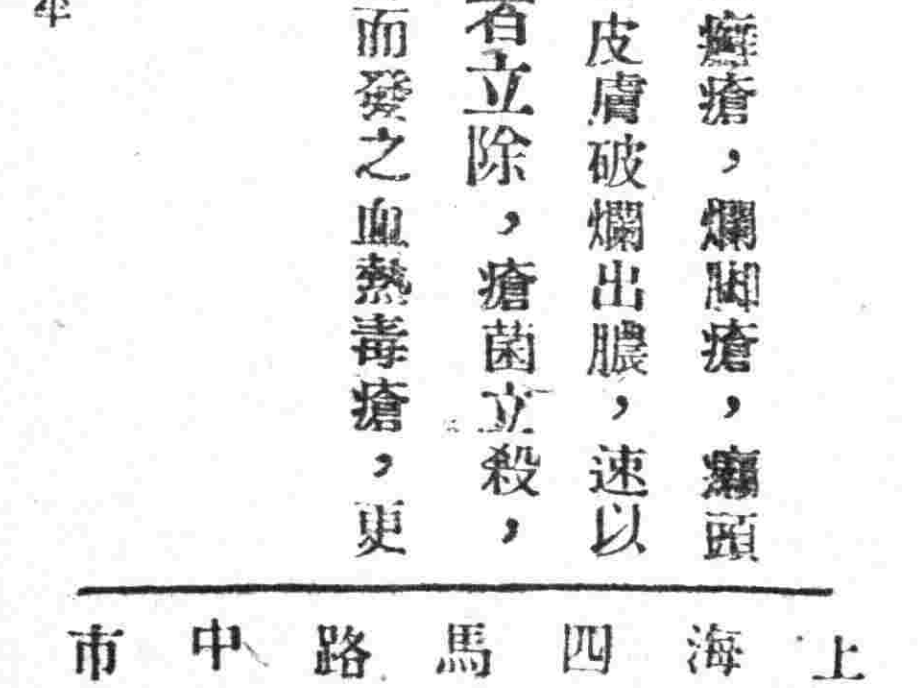 癬瘡，爛脚瘡，癩頭
皮膚破爛出膿，速以
者立除，瘡菌立殺，
而發之血熱毒瘡，更
上海四馬路中市